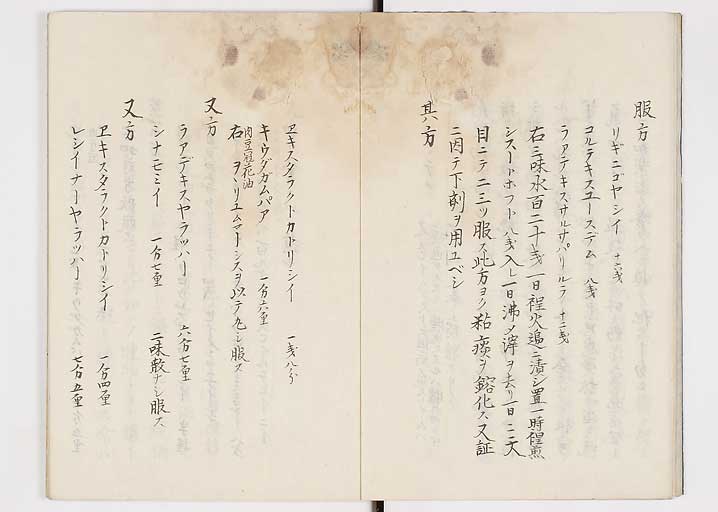 服方
リギニゴヤシイ 十六戔
コルテキスユースデム 八戔
ラアデキスサルサパリルラ 十二戔
右三味水百二十戔一日程火邉ニ漬シ置一時程煎
シスートホフト八戔入レ一日沸メ滓ヲ去リ一日ニ大
目ニテ二三ツ服ス此方ヨク粘痰ヲ鎔化ス又証
ニ因テ下剤ヲ用ユベシ
其方
ヱキスタラクトカトリシイ 一戔八分
キウダガムパア 一分六厘
肉豆冠花油
右 ヲシリユムマトシスヲ以テ丸シ服ス
又方
ラアデキスヤラッハー 六分七厘
シナモミイ 一分七厘 二味散ナシ服ス
又方
ヱキスタラクトカトリシイ 一分四厘
レシイナーヤラッハー 七分五厘